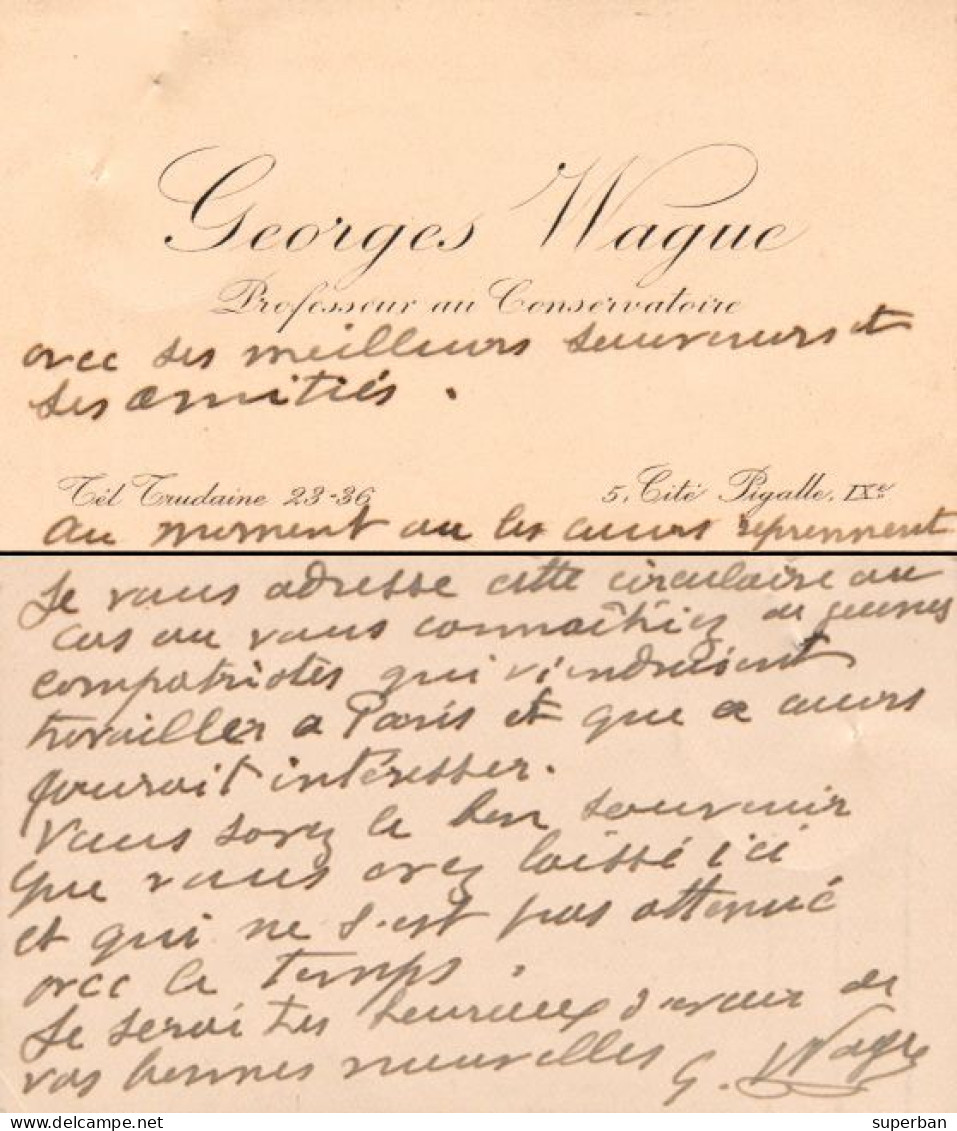 Georges Wague
Professeur au Conservatoire
avec ses meilleurs souvenirs et
ses amitiés.
Tél Trudaine 23-36
5, Cité Pigalle, IXe
au moment ou les cours reprennent
Je vous adresse cette circulaire au
cas ou vous connaîtriez de jeunes
compatriotes qui viendraient
travailler a Paris et que ce cours
pourait intéresser.
Vous savez le bon souvenir
que vous avez laissé ici
et qui ne s'est pas attenué
avec le temps.
Je serai tres heureux d'avoir de
vos bonnes nouvelles G. Wague
superban